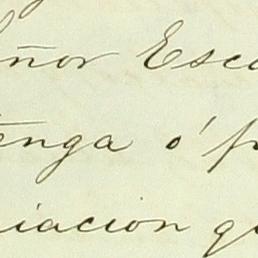 eñor Esc
enga ó p
iacion q